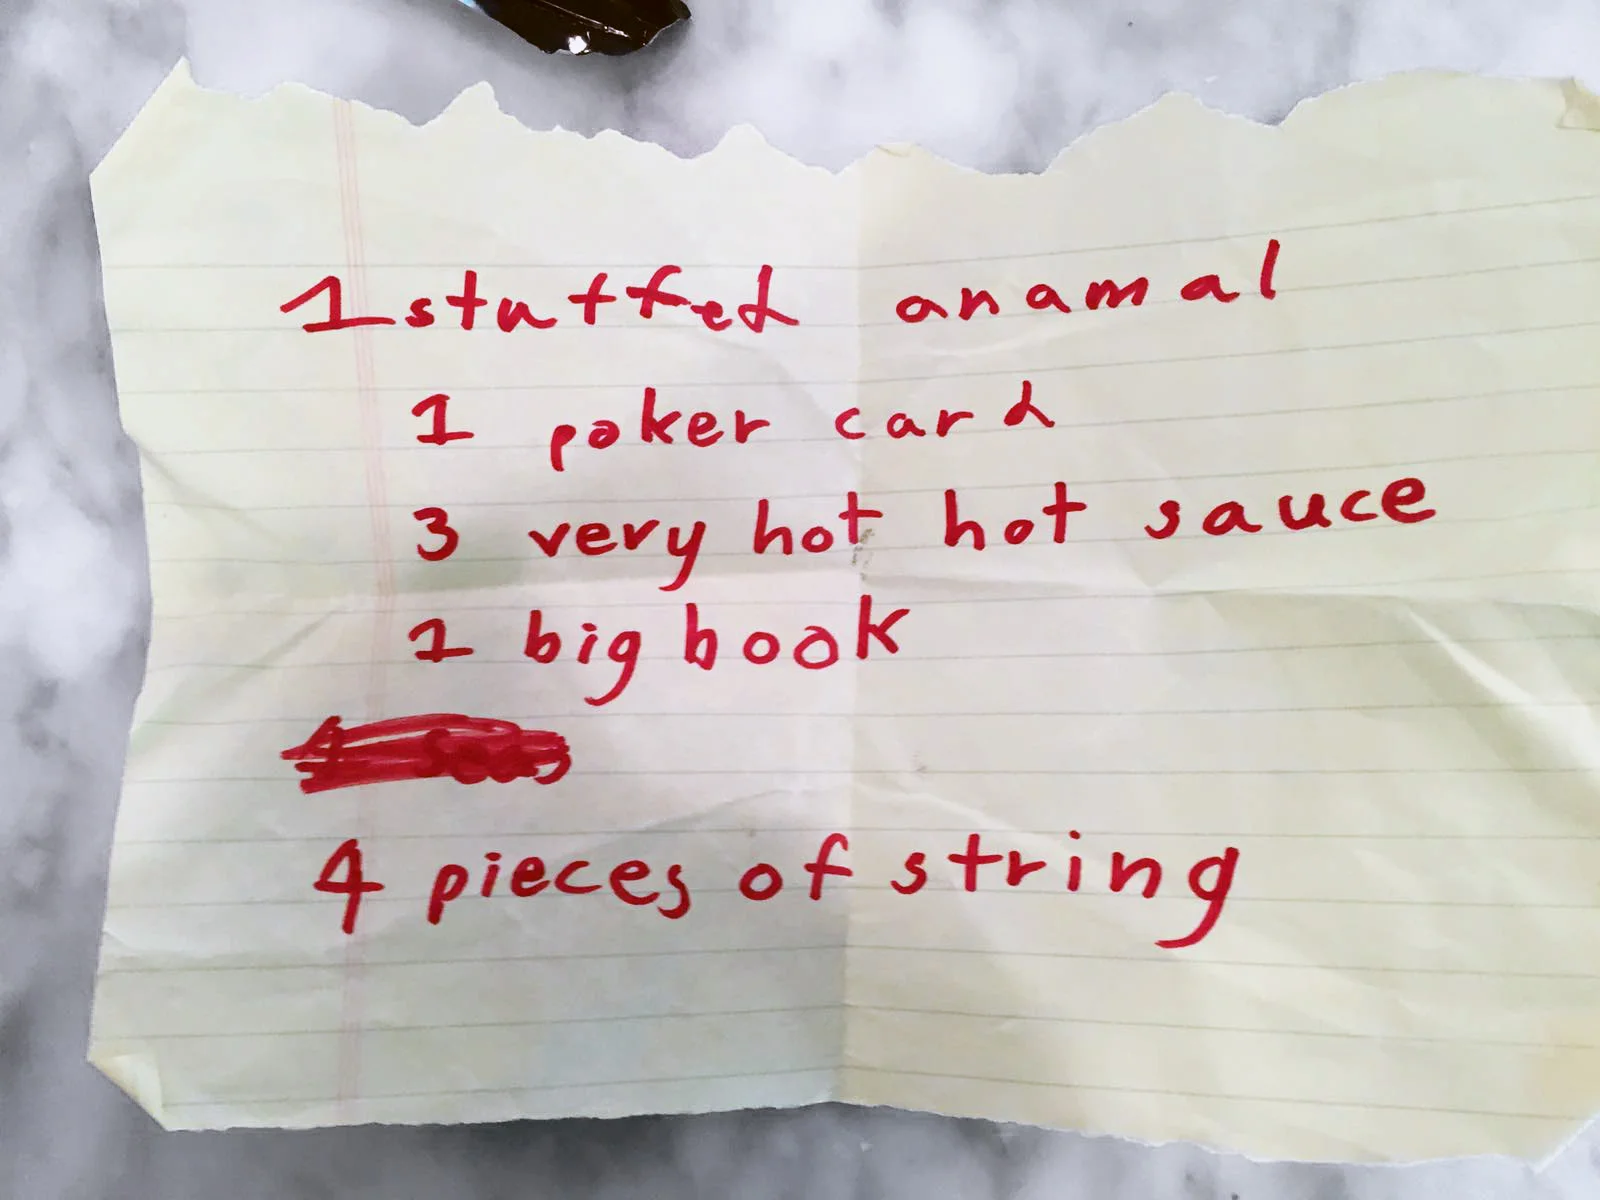 1 stuffed anamal
1 poker card
3 very hot hot sauce
1 big book
4 pieces of string